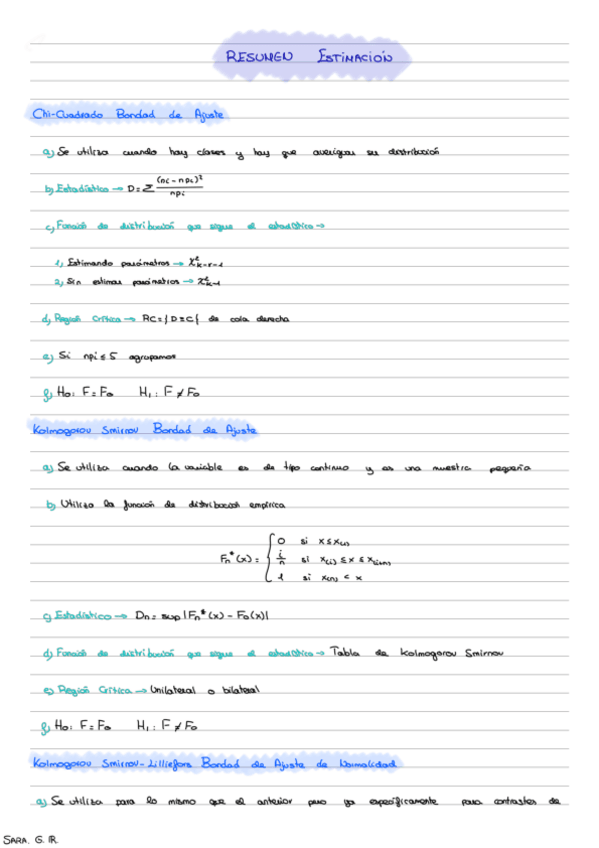 RESUMEN ESTIMACIÓN
Chi-Cuadrado Bondad de Ajuste
a) Se utiliza cuando hay clases y hay que averiguar su distribución
b) Estadístico → D = Σ (ni - npi)² / npi
c) Función de distribución que sigue el estadístico →
1) Estimando parámetros → χ²k-r-1
2) Sin estimar parámetros → χ²k-1
d) Región Crítica → RC = { D ≥ C } de cola derecha
e) Si npi ≤ 5 agrupamos
f) H0: F = F0 H1: F ≠ F0
Kolmogorov Smirnov Bondad de Ajuste
a) Se utiliza cuando la variable es de tipo continuo y es una muestra pequeña
b) Utilizo la función de distribución empírica
0 si x ≤ x(1)
Fn*(x) = i/n si x(i) ≤ x ≤ x(i+1)
1 si x(n) < x
c) Estadístico → Dn = sup |Fn*(x) - F0(x)|
d) Función de distribución que sigue el estadístico → Tabla de Kolmogorov Smirnov
e) Región Crítica → Unilateral o bilateral
f) H0: F = F0 H1: F ≠ F0
Kolmogorov Smirnov-Lilliefors Bondad de Ajuste de Normalidad
a) Se utiliza para lo mismo que el anterior pero ya específicamente para contrastes de
SARA. G. R.